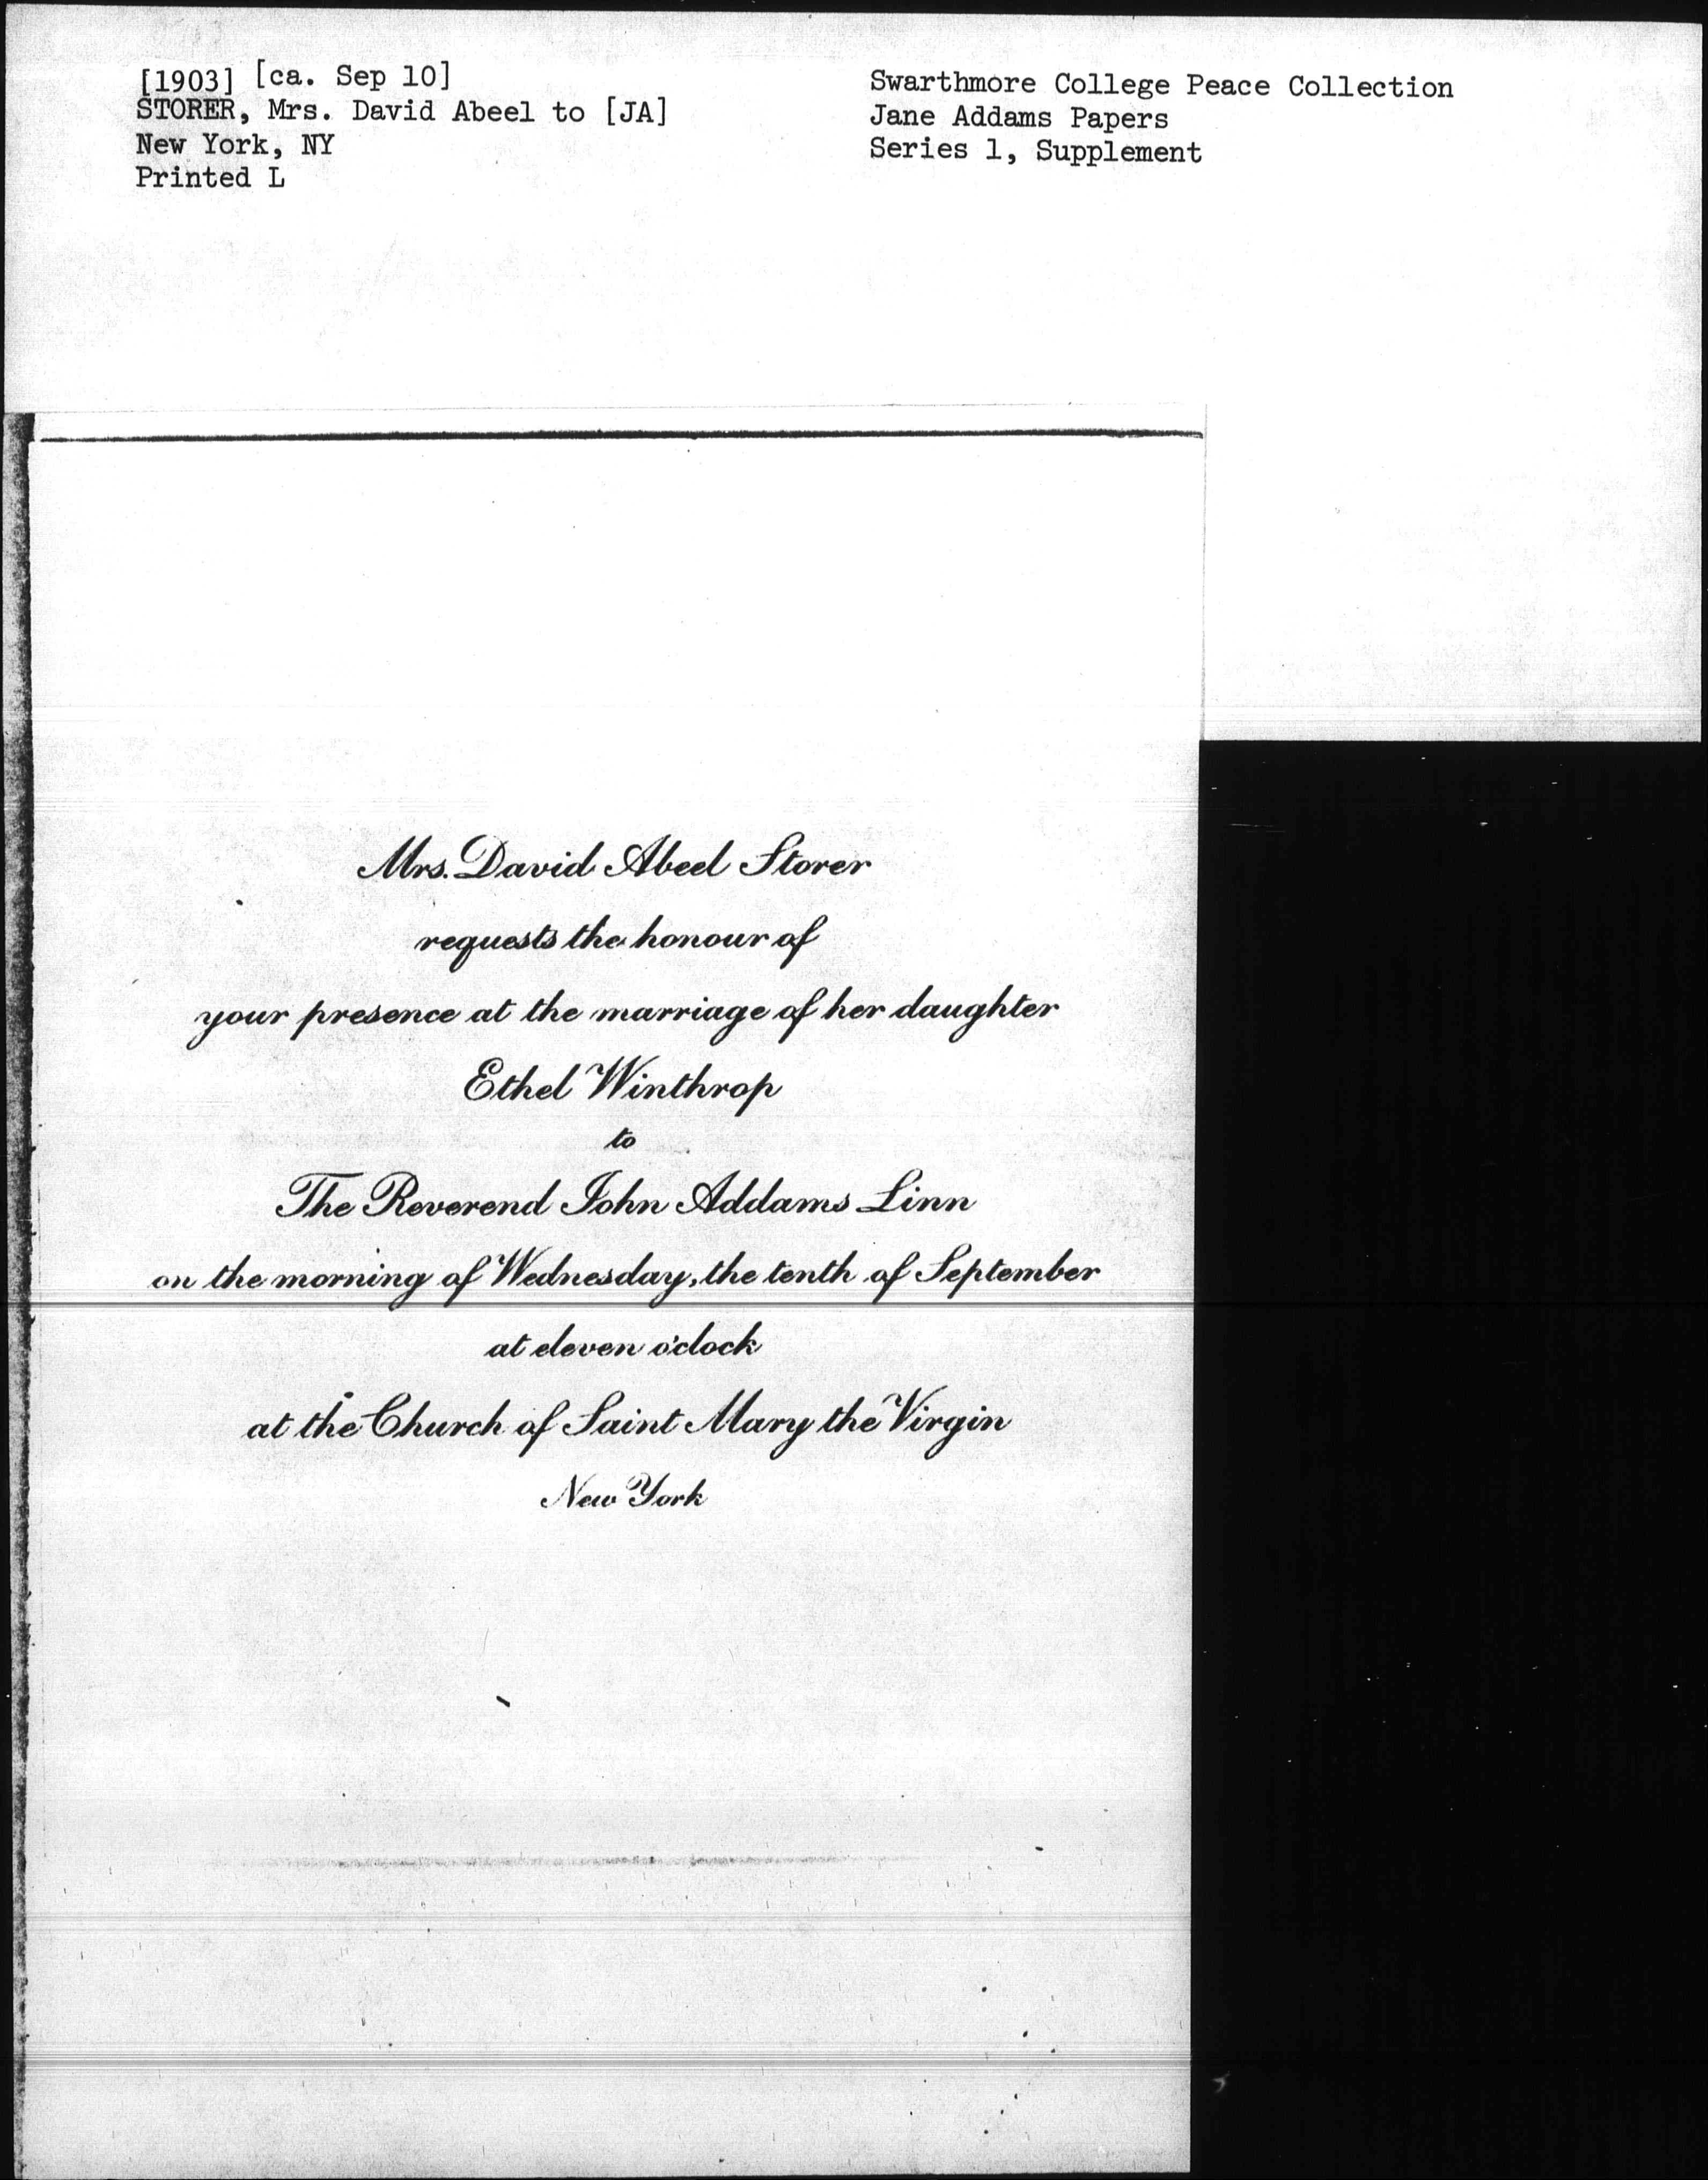 [1903] [ca. Sep 10]
STORER, Mrs. David Abeel to [JA]
New York, NY
Printed L
Swarthmore College Peace Collection
Jane Addams Papers
Series 1, Supplement
Mrs. David Abeel Storer
requests the honour of
your presence at the marriage of her daughter
Ethel Winthrop
to
The Reverend John Addams Linn
on the morning of Wednesday, the tenth of September
at eleven o'clock
at the Church of Saint Mary the Virgin
New York